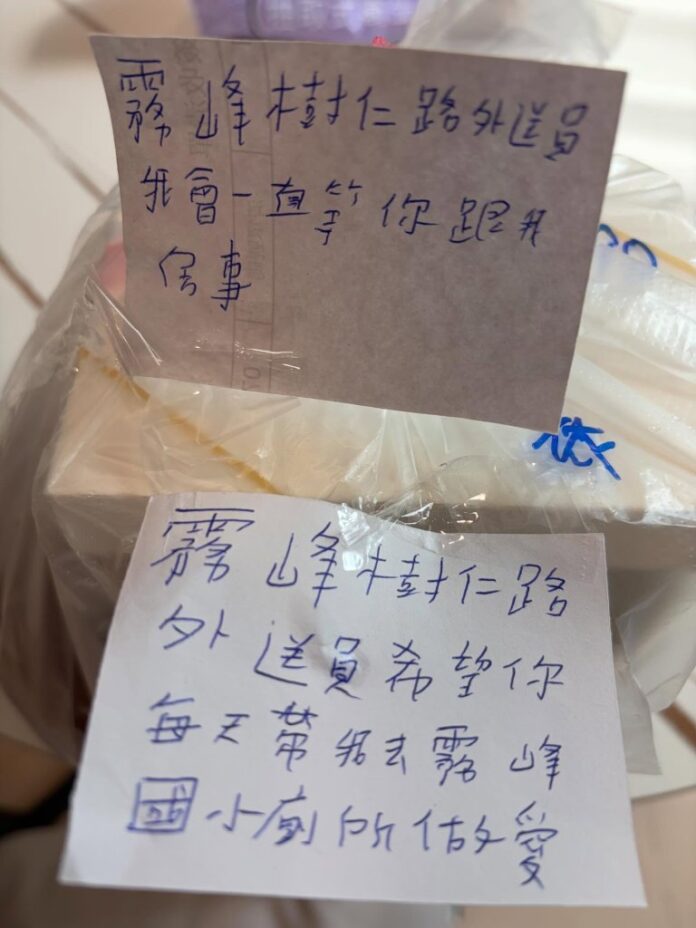 霧峰樹仁路外送員
我會一直等你跟我
房事
霧峰樹仁路
外送員希望你
每天帶我去霧峰
國小廁所做愛